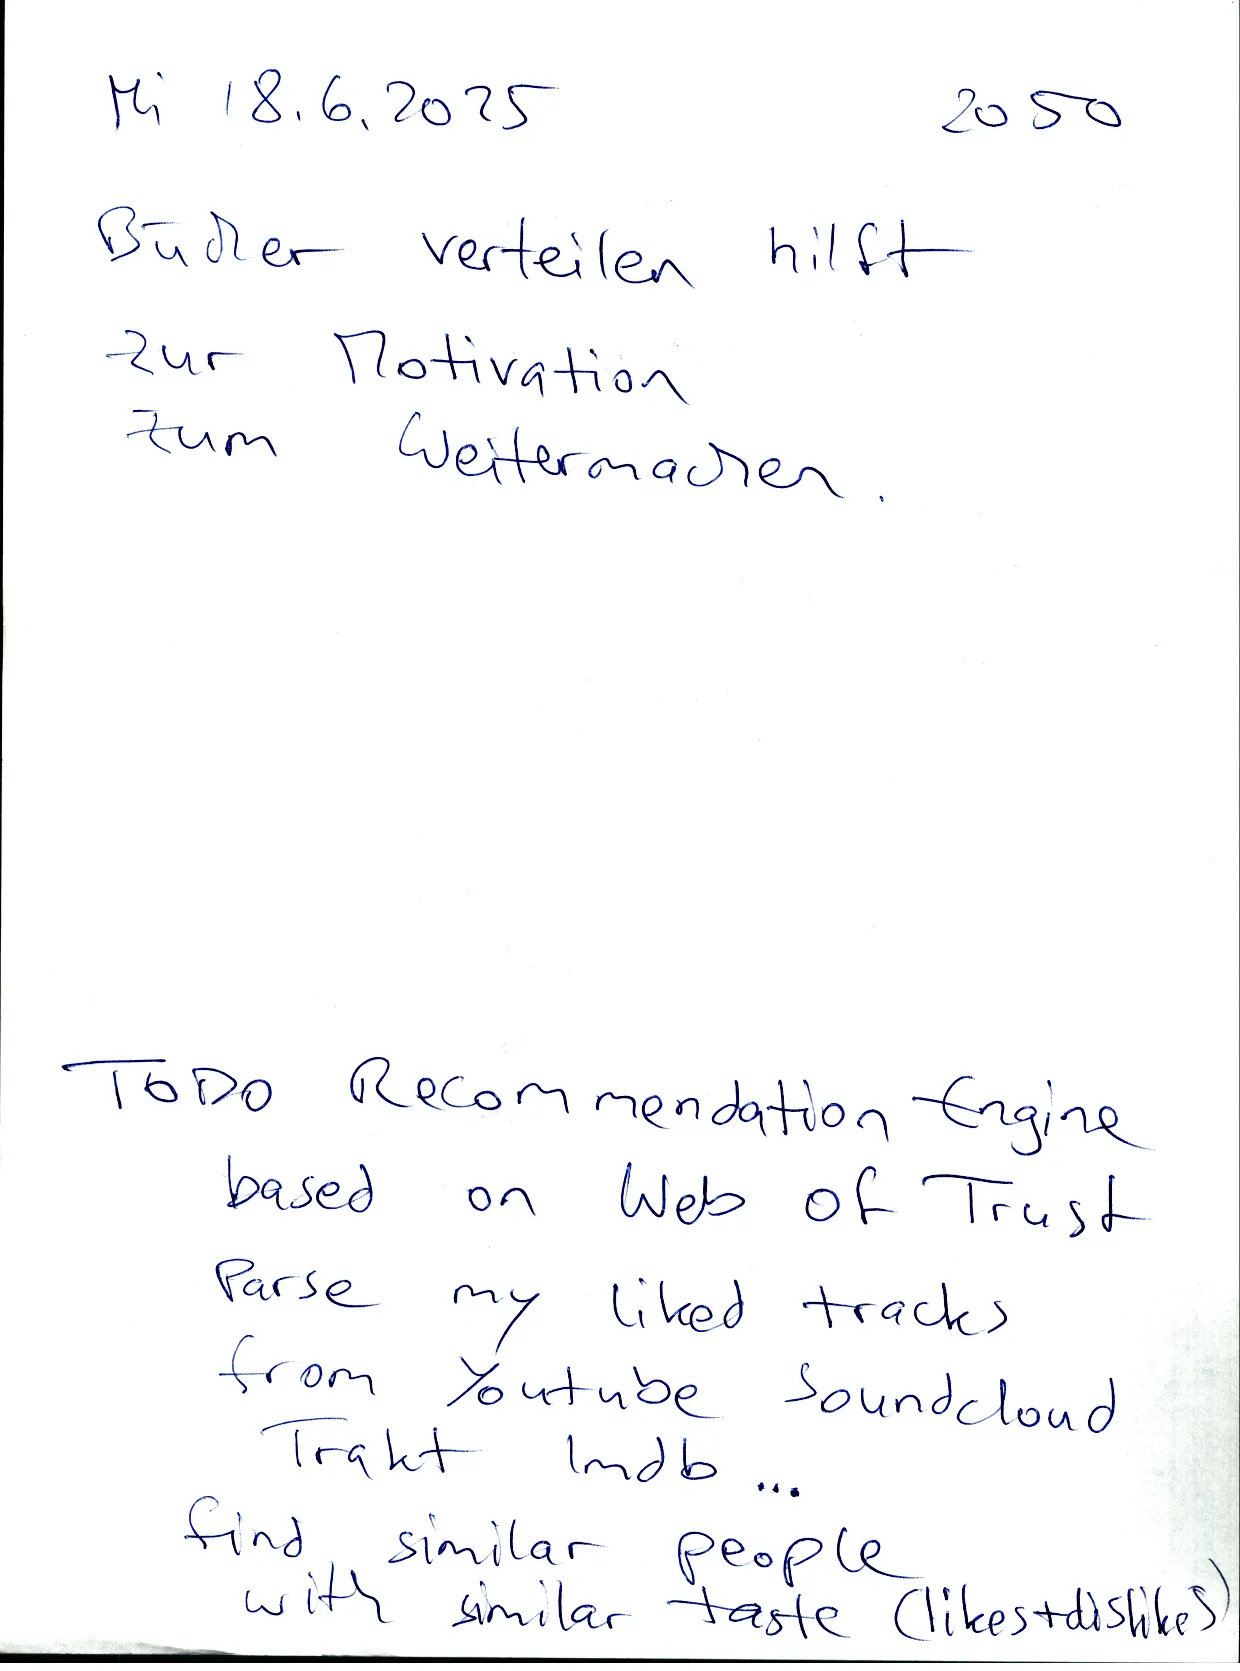 Mi 18.6.2025 2050
Bücher verteilen hilft
zur Motivation
zum Weitermachen.
TODO Recommendation Engine
based on Web of Trust
Parse my liked tracks
from Youtube Soundcloud
Trakt Imdb ...
find similar people
with similar taste (likes+dislikes)